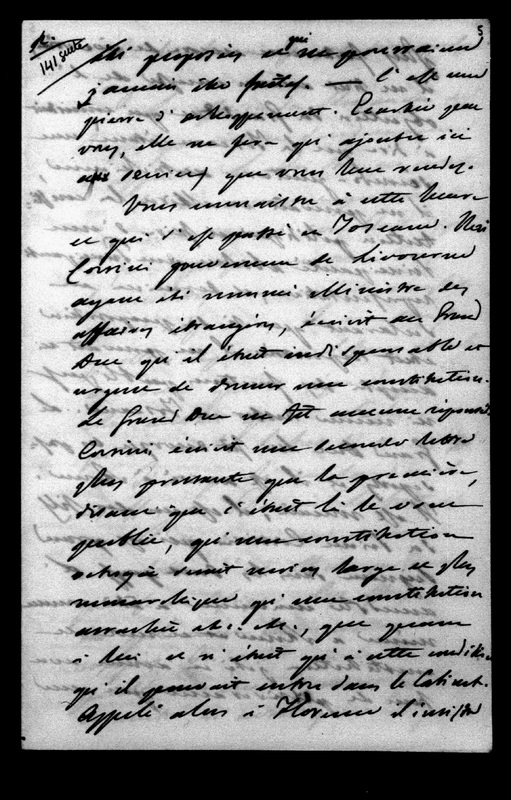 141 suite
5
été proposées et qui ne pourraient
jamais être
pierre d'achoppement. Écartée par
vous, elle ne fera qu'ajouter ici
aux services que vous leur rendez.
Vous connaissez à cette heure
ce qui s'est passé en Toscane. Neri
Corsini gouverneur de Livourne
ayant été nommé Ministre des
affaires étrangères, écrivit au Grand
Duc qu'il était indispensable et
urgent de donner une constitution.
Le Grand Duc ne fit aucune réponse.
Corsini écrivit une seconde lettre
plus pressante que la première,
disant que c'était là le vœu
public, qu'une constitution
octroyée serait moins large et plus
monarchique qu'une constitution
arrachée etc. etc., que quant
à lui ce n'était qu'à cette condition
qu'il pouvait entrer dans le Cabinet.
Appelé alors à Florence il insista